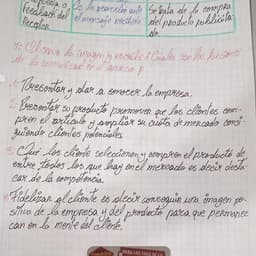 Feedback del
Receptor
Es la reacción ante
el mensaje recibido
Se trata de la compra
del producto publicita-
do.
4: Observa la imagen y escribe ¿Cuáles son las funciones
de la
1. Presentar y dar a conocer la empresa.
2. Presentar su producto, promover que los clientes com-
pren el artículo y ampliar su cuota de mercado consi
guiendo clientes potenciales
3. Que los cliente seleccionen y compren el producto de
entre todos los que hay en el mercado es decir desta-
car de la competencia.
Fidelizar al cliente es decir conseguir una imagen po-
sitiva de la empresa y del producto para que permanez
can en la mente del cliente.